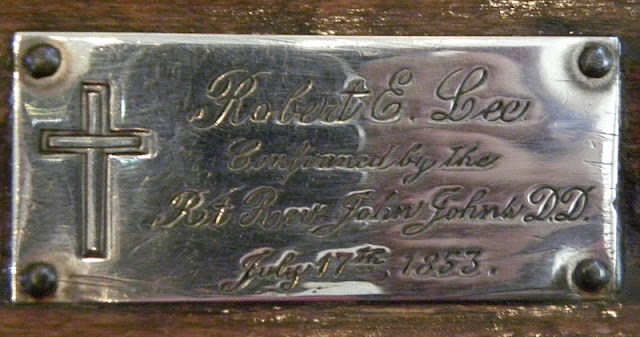 Robert E. Lee
Confirmed by the
Rt Rev John Johns D.D.
July 17th, 1853.